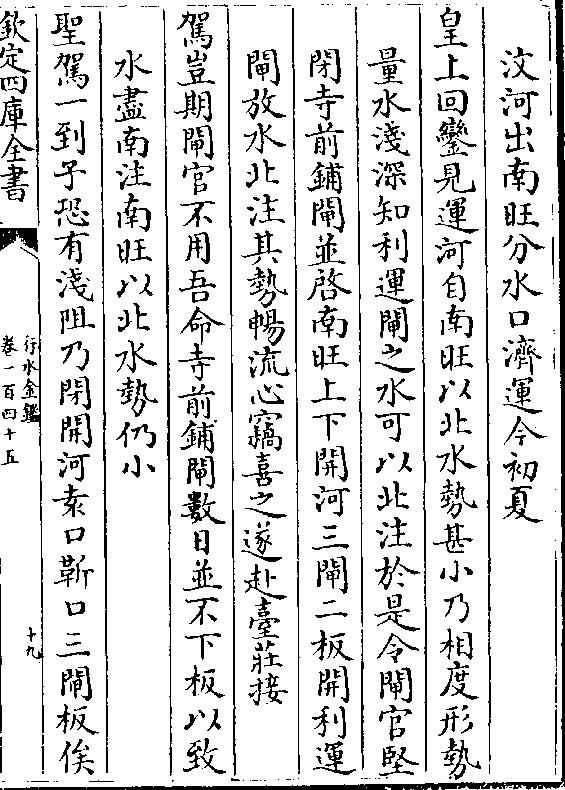 汶河出南旺分水口濟運今初夏
皇上回鑾見運河自南旺以北水勢甚小乃相度形勢
量水淺深知利運閘之水可以北注於是令閘官堅
閉寺前鋪閘並啓南旺上下開河三閘二板開利運
閘放水北注其勢暢流心竊喜之遂赴臺莊接
駕豈期閘官不用吾命寺前鋪閘數日並不下板以致
水盡南注南旺以北水勢仍小
聖駕一到予恐有淺阻乃閉開河袁口靳口三閘板俟
欽定四庫全書
行水金鑑
卷一百四十五
十九